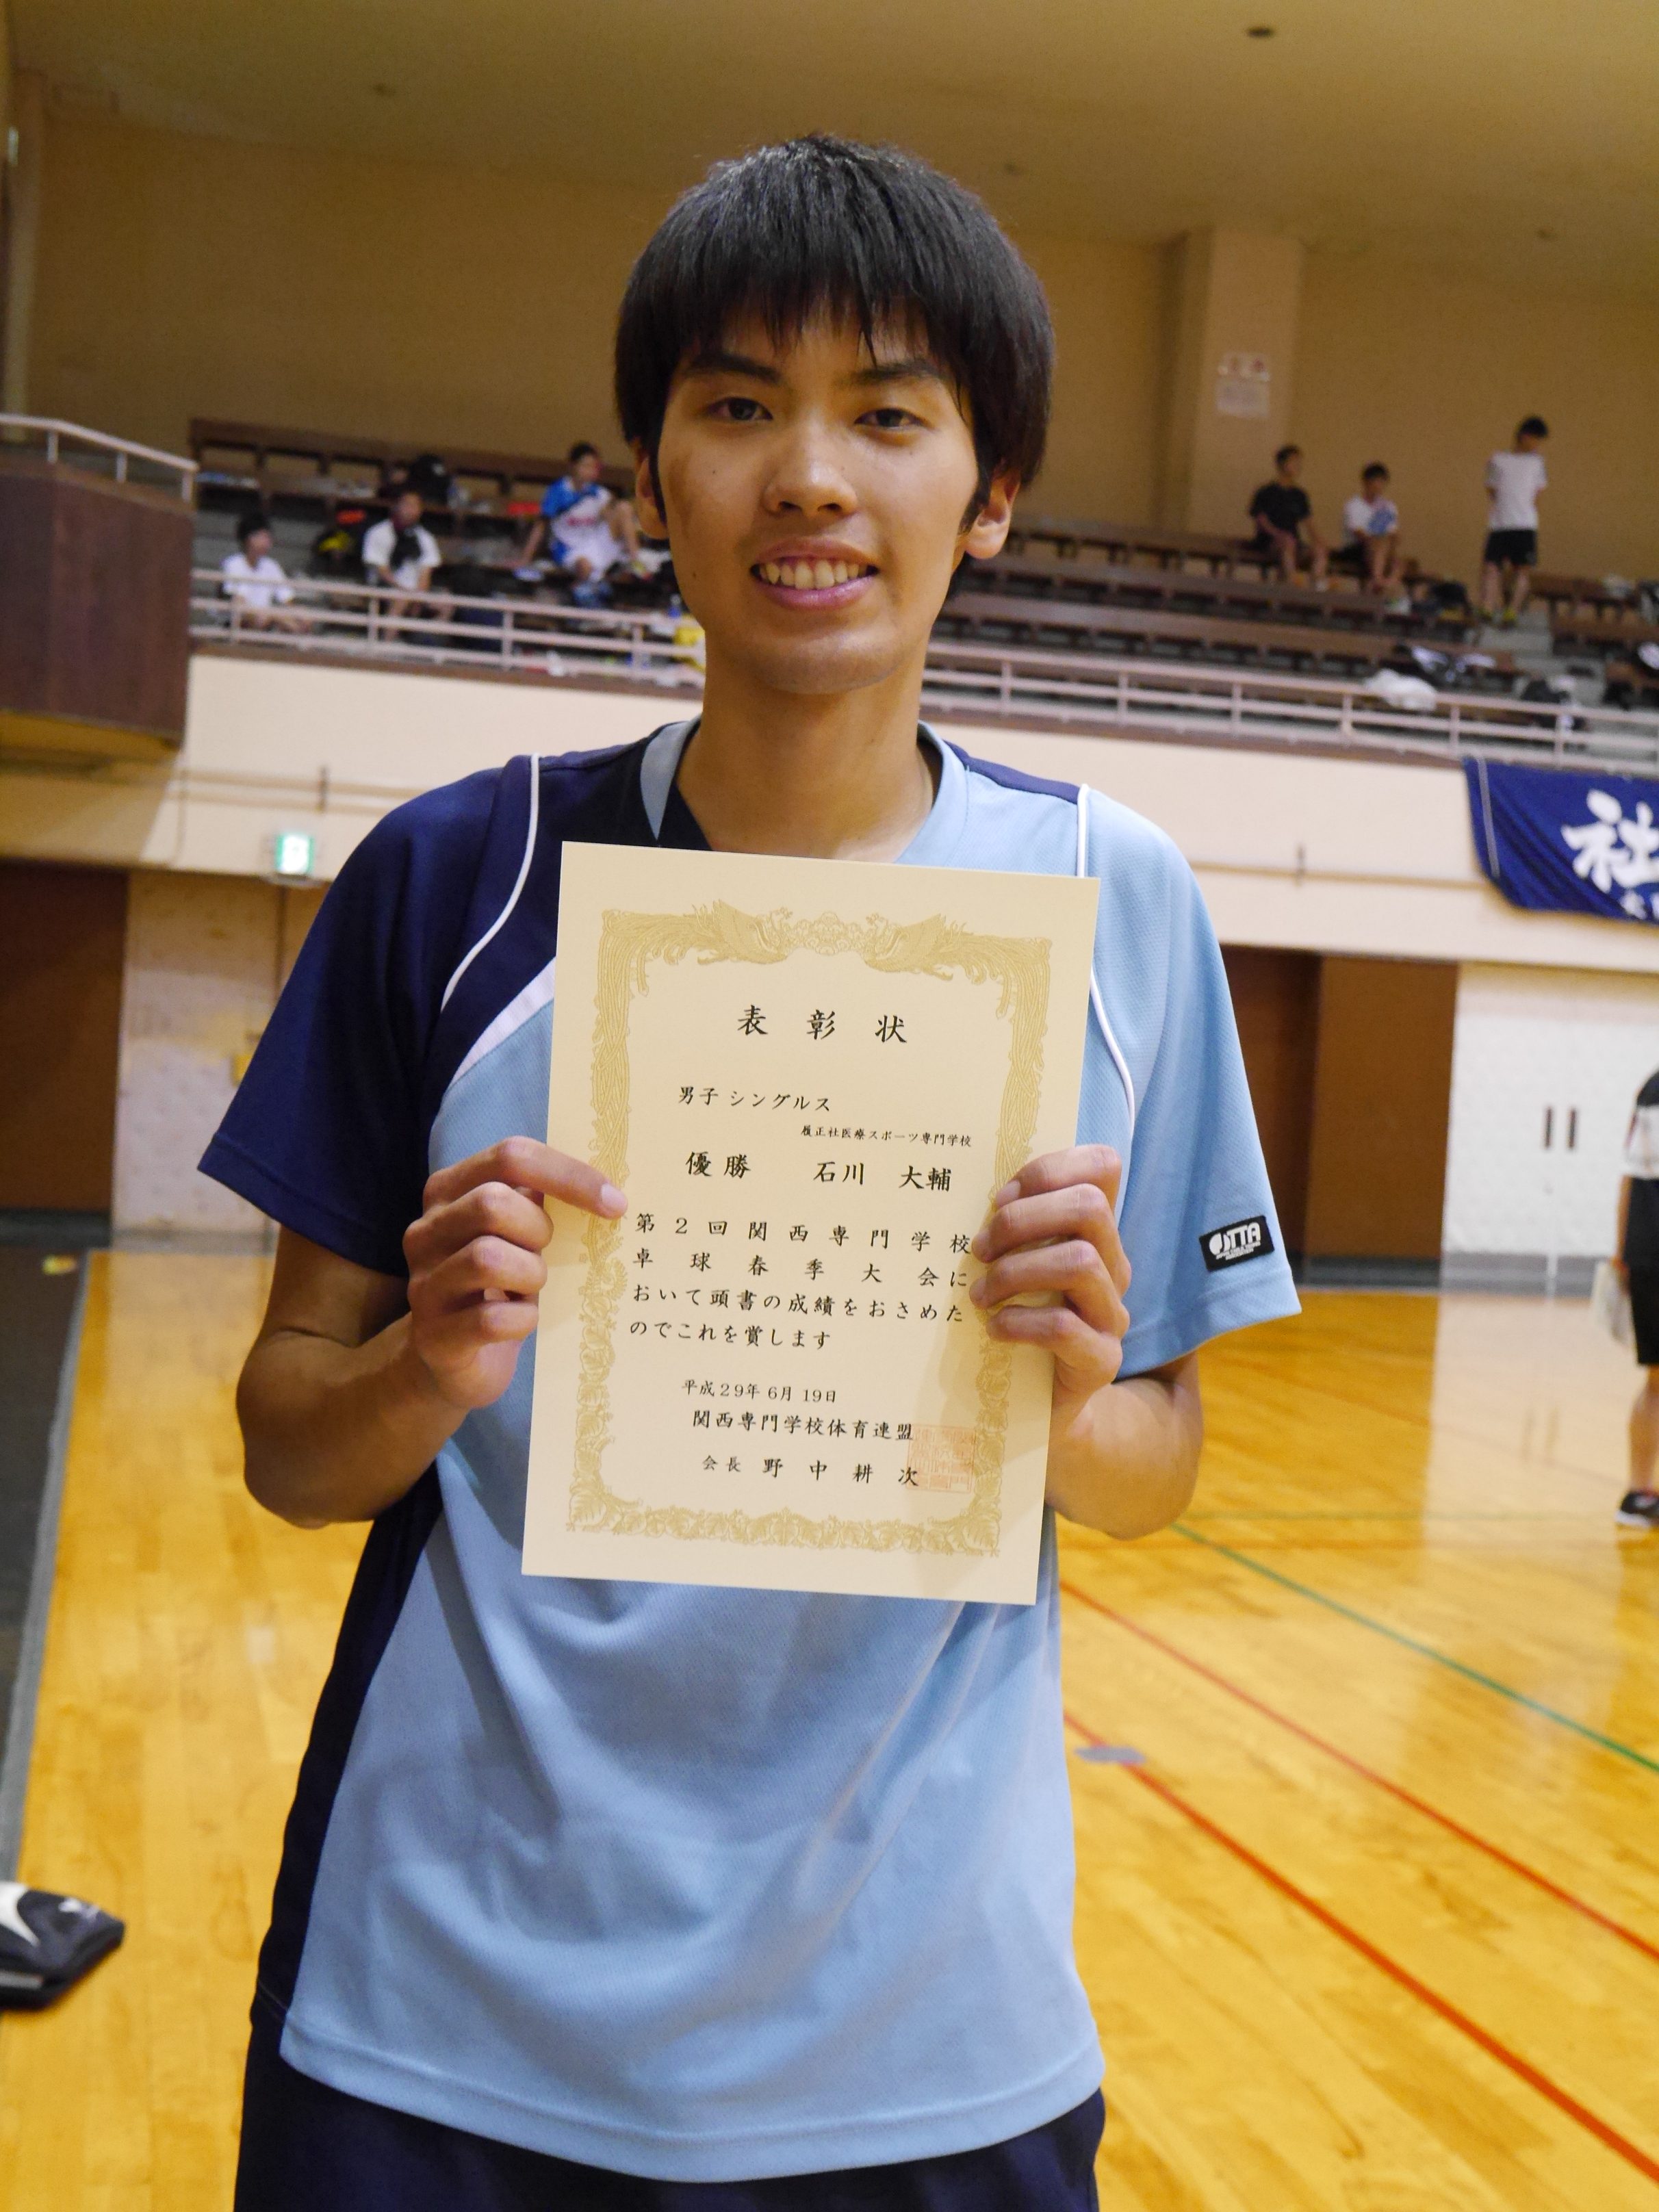 表彰状
男子 シングルス
履正社医療スポーツ専門学校
優勝 石川 大輔
第2回関西専門学校
卓球春季大会に
おいて頭書の成績をおさめた
のでこれを賞します
平成29年6月19日
関西専門学校体育連盟
会長 野中耕次
JTTA
社